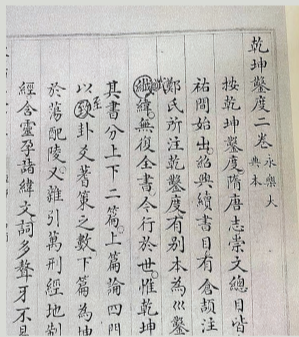 乾坤鑿度二卷 永樂大典本
按乾坤鑿度隋唐志崇文總目皆
祐間始出紹興續書目有倉頡注
鄭氏所注乾鑿度有别本為巛鑿
緯無復全書今行於世惟乾坤
其書分上下二篇上篇論四門
以致卦爻蓍策之數下篇為坤
於蕩配陵又雜引萬刑經地制
經含靈孕諸緯文詞多聱牙不